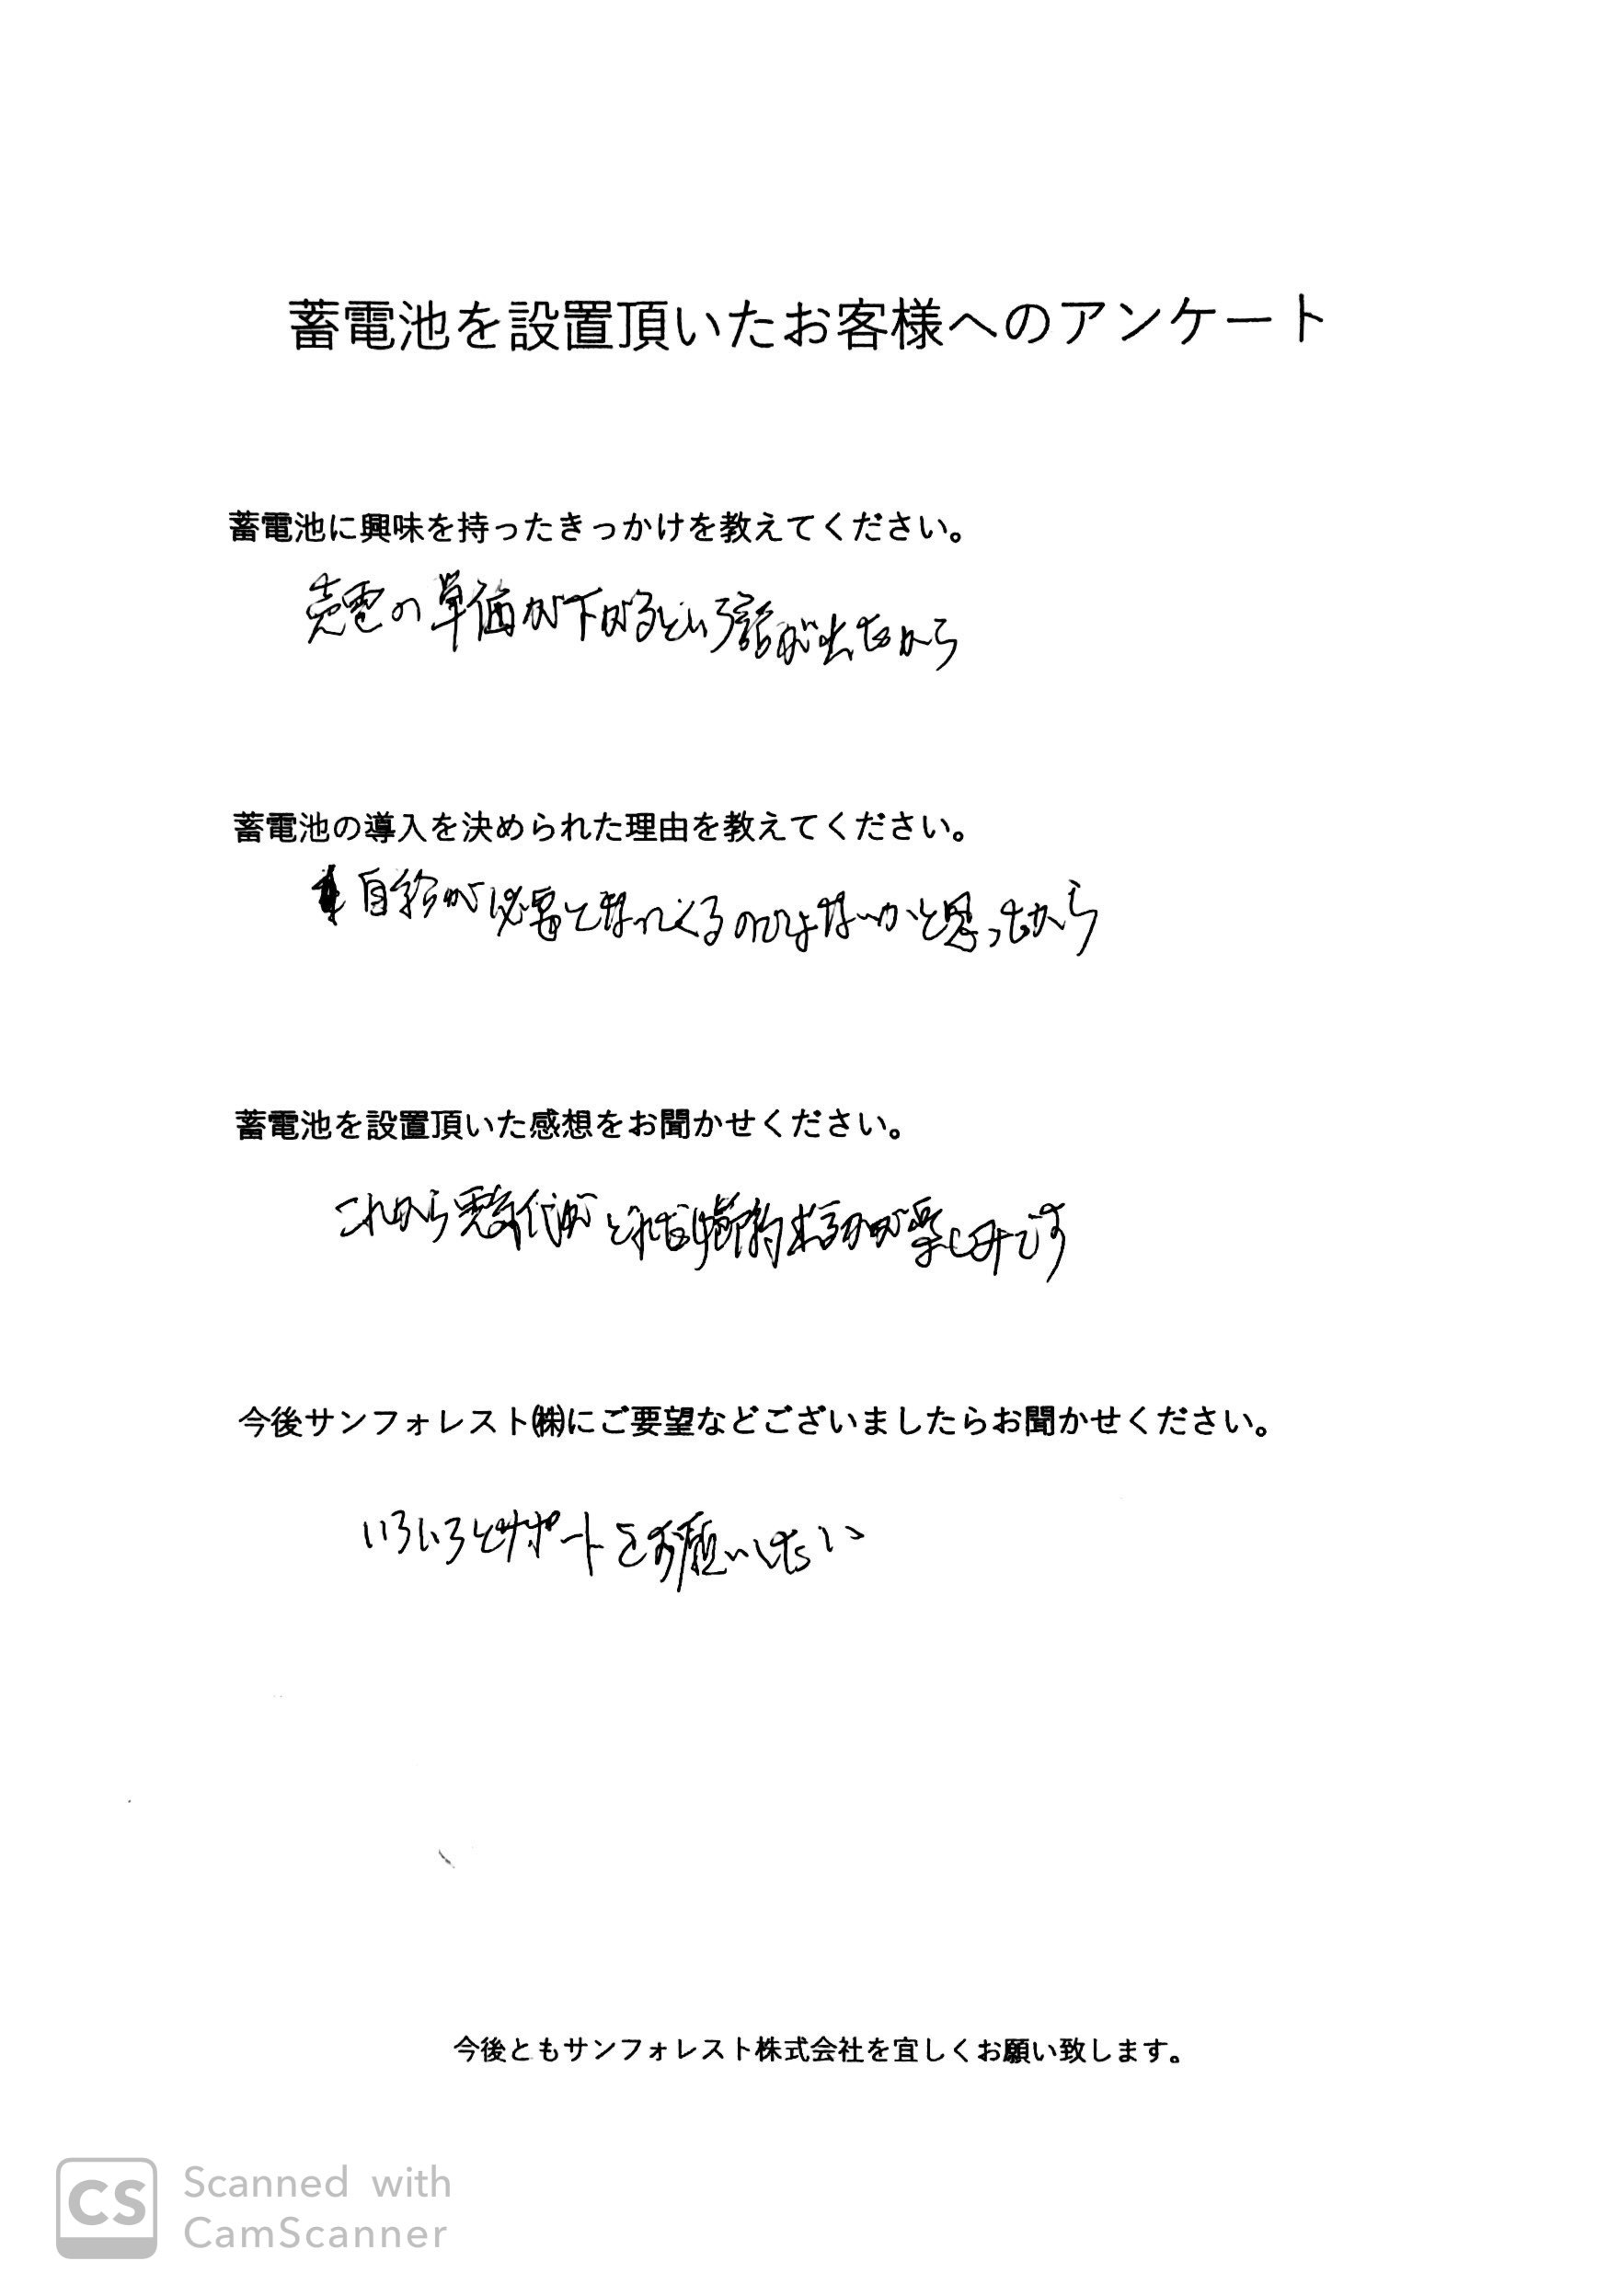 蓄電池を設置頂いたお客様へのアンケート
蓄電池に興味を持ったきっかけを教えてください。
売電の単価が下がるという話が出たから
蓄電池の導入を決められた理由を教えてください。
自給が必要となってくるのではないかと思ったから
蓄電池を設置頂いた感想をお聞かせください。
これから電気代がどれだけ節約出来るかが楽しみです
今後サンフォレスト㈱にご要望などございましたらお聞かせください。
いろいろとサポートをお願いしたい
今後ともサンフォレスト株式会社を宜しくお願い致します。
CS
Scanned with
CamScanner